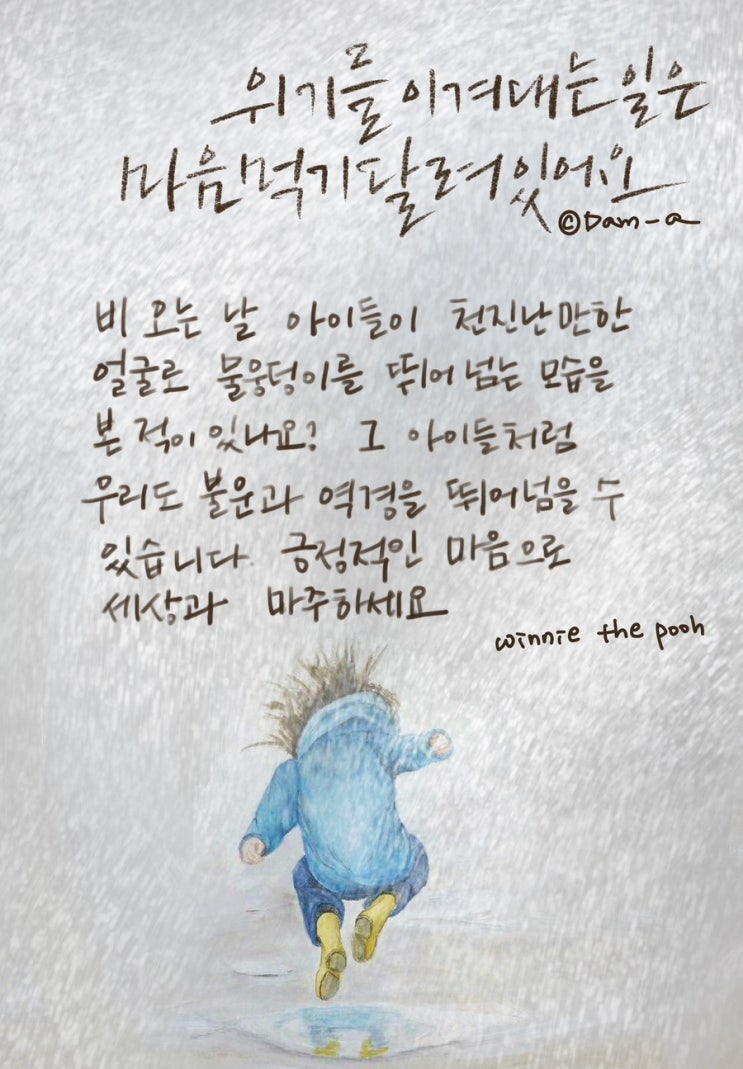 위기를 이겨내는 일은
마음먹기 달려있어요
©Dam-a
비 오는 날 아이들이 천진난만한
얼굴로 물웅덩이를 뛰어 넘는 모습을
본 적이 있나요? 그 아이들처럼
우리도 불운과 역경을 뛰어넘을 수
있습니다. 긍정적인 마음으로
세상과 마주하세요
winnie the pooh